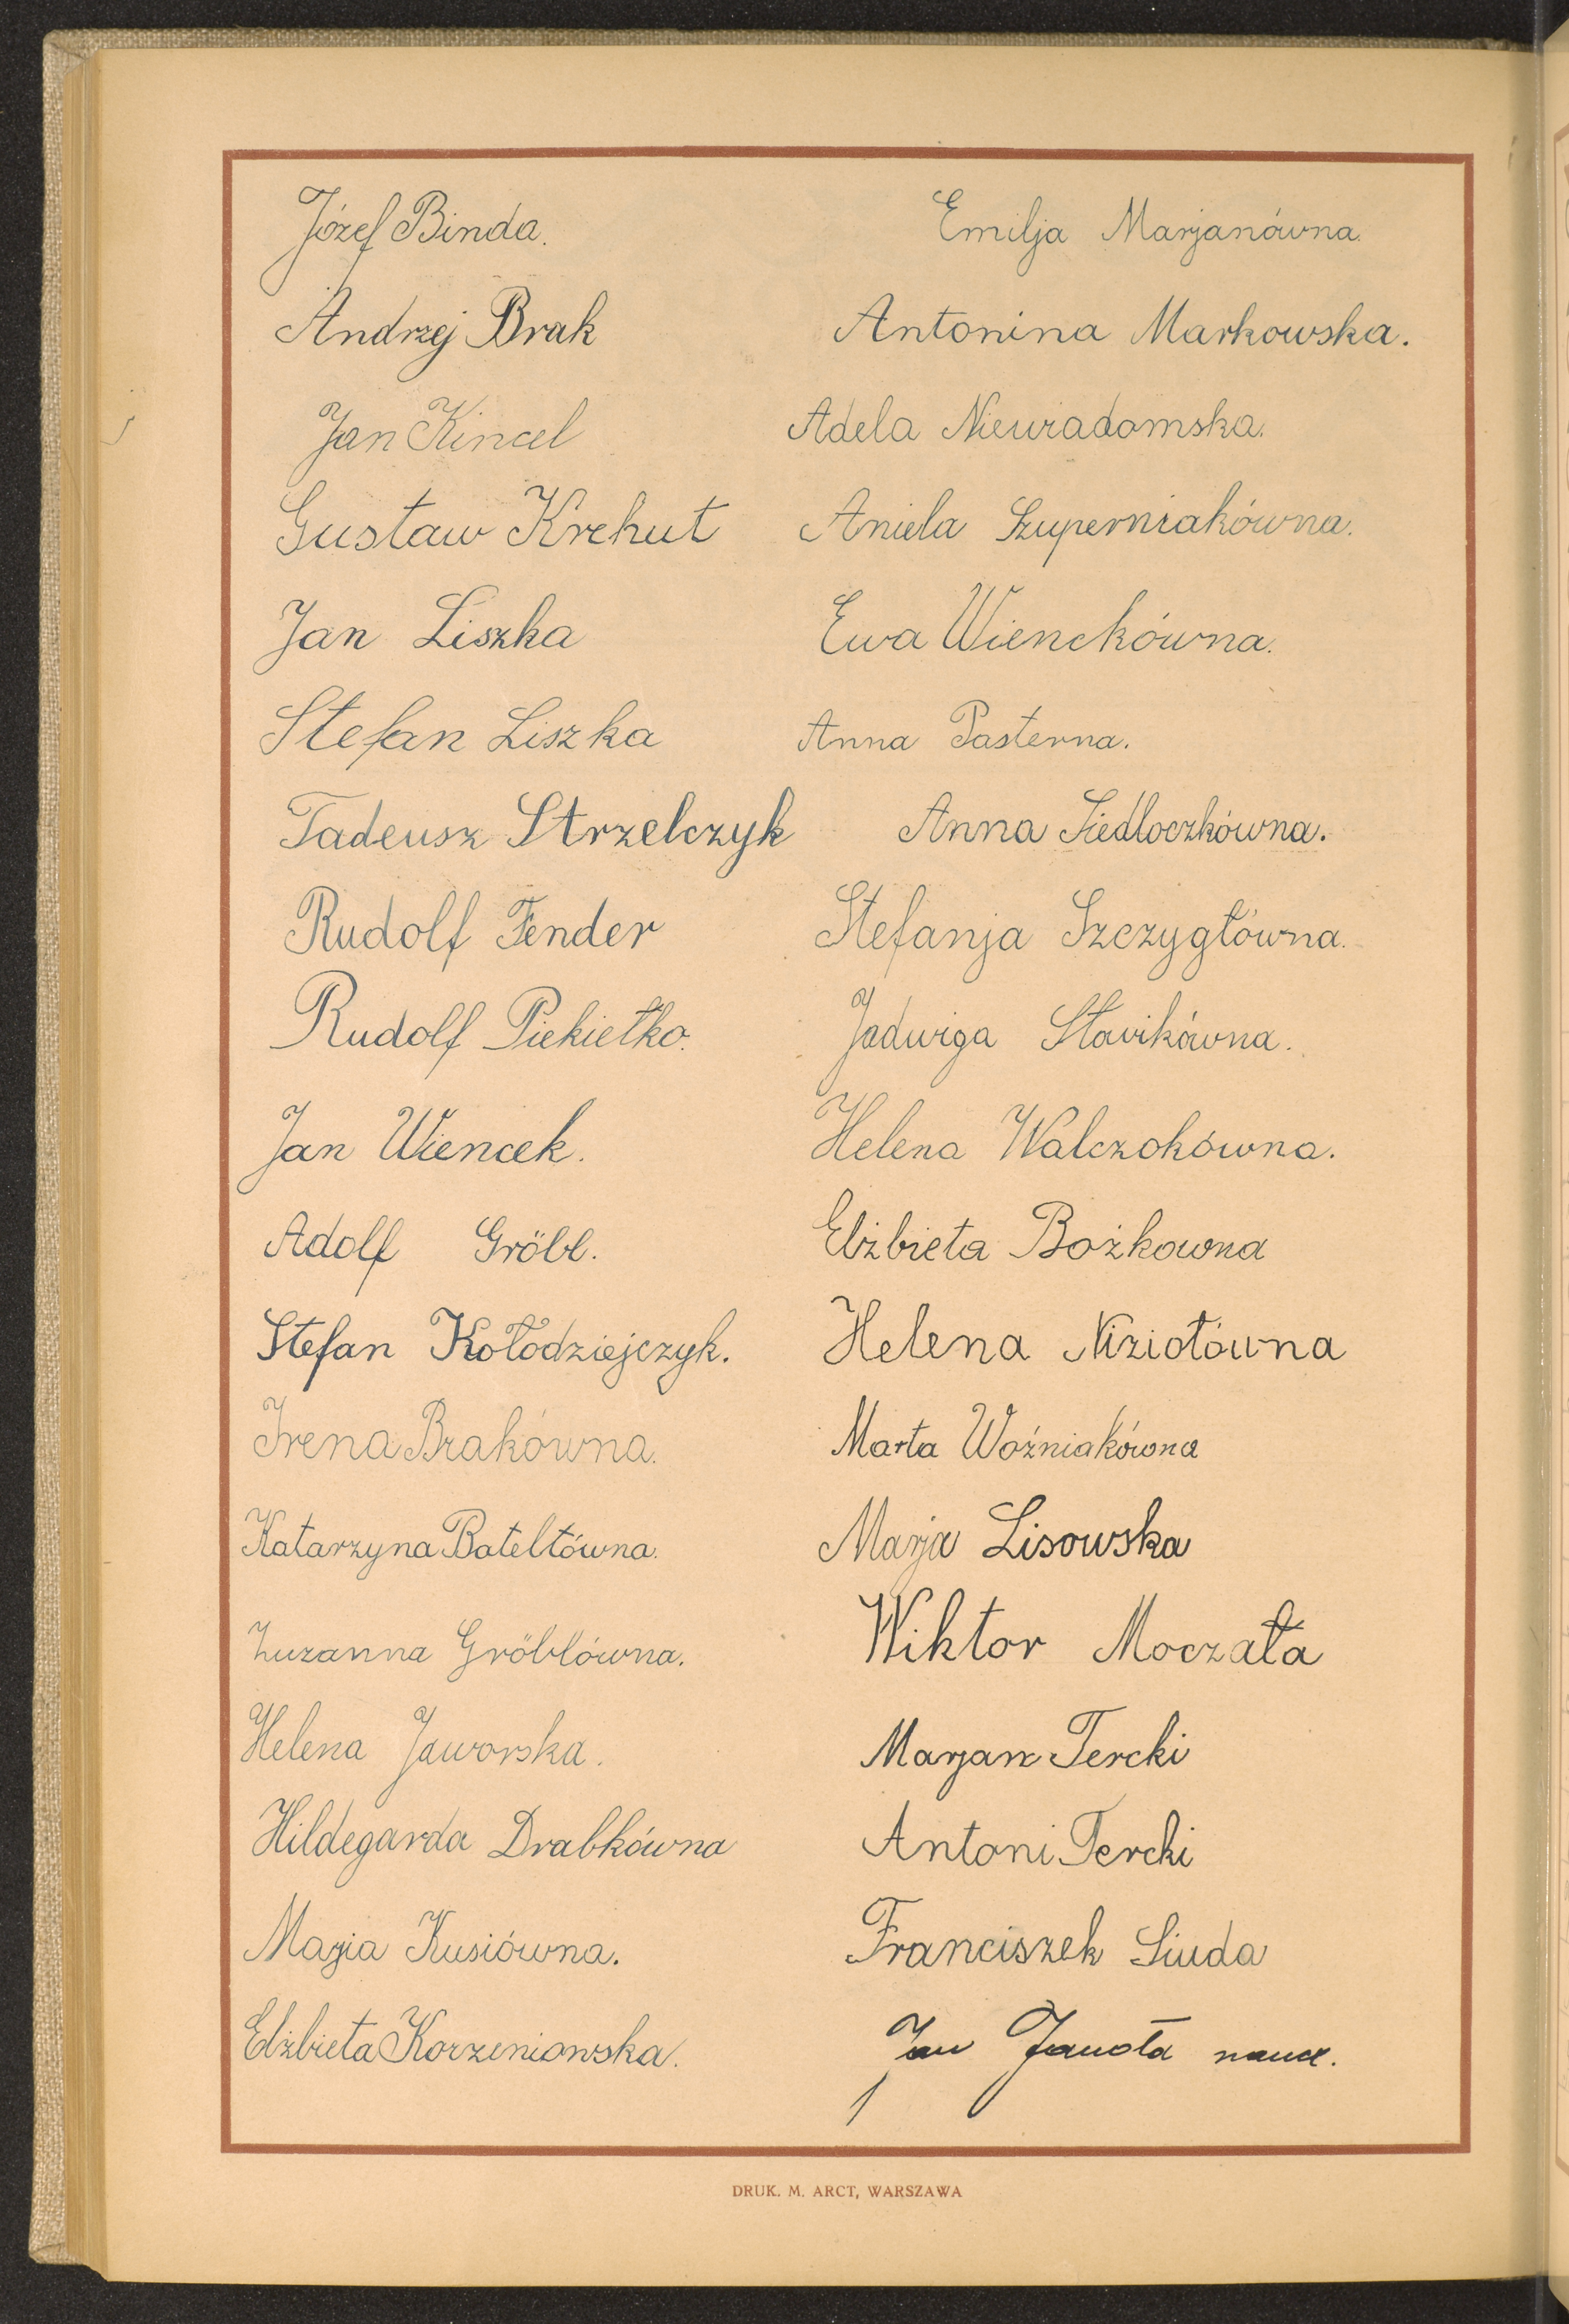 Józef Binda.
Andrzej Brak
Jan Kincel
Gustaw Krehut
Jan Liszka
Stefan Liszka
Tadeusz Strzelczyk
Rudolf Fender
Rudolf Piekiełko.
Jan Wiencek.
Adolf Gröbl.
Stefan Kołodziejczyk.
Irena Brakówna.
Katarzyna Bateltówna.
Zuzanna Gröblówna.
Helena Jaworska.
Hildegarda Drabkówna
Marja Kusiówna.
Elżbieta Korzeniowska.
Emilja Marjanówna.
Antonina Markowska.
Adela Niewiadomska.
Aniela Szuperniakówna.
Ewa Wienckówna.
Anna Pasterna.
Anna Siedloczkówna.
Stefanja Szczygłówna.
Jadwiga Sławikówna.
Helena Walczokówna.
Elżbieta Bożkowna
Helena Niziołówna
Marta Woźniakówna
Marja Lisowska
Wiktor Moczała
Marjan Tercki
Antoni Tercki
Franciszek Siuda
Jan Janota naucz.
DRUK. M. ARCT, WARSZAWA